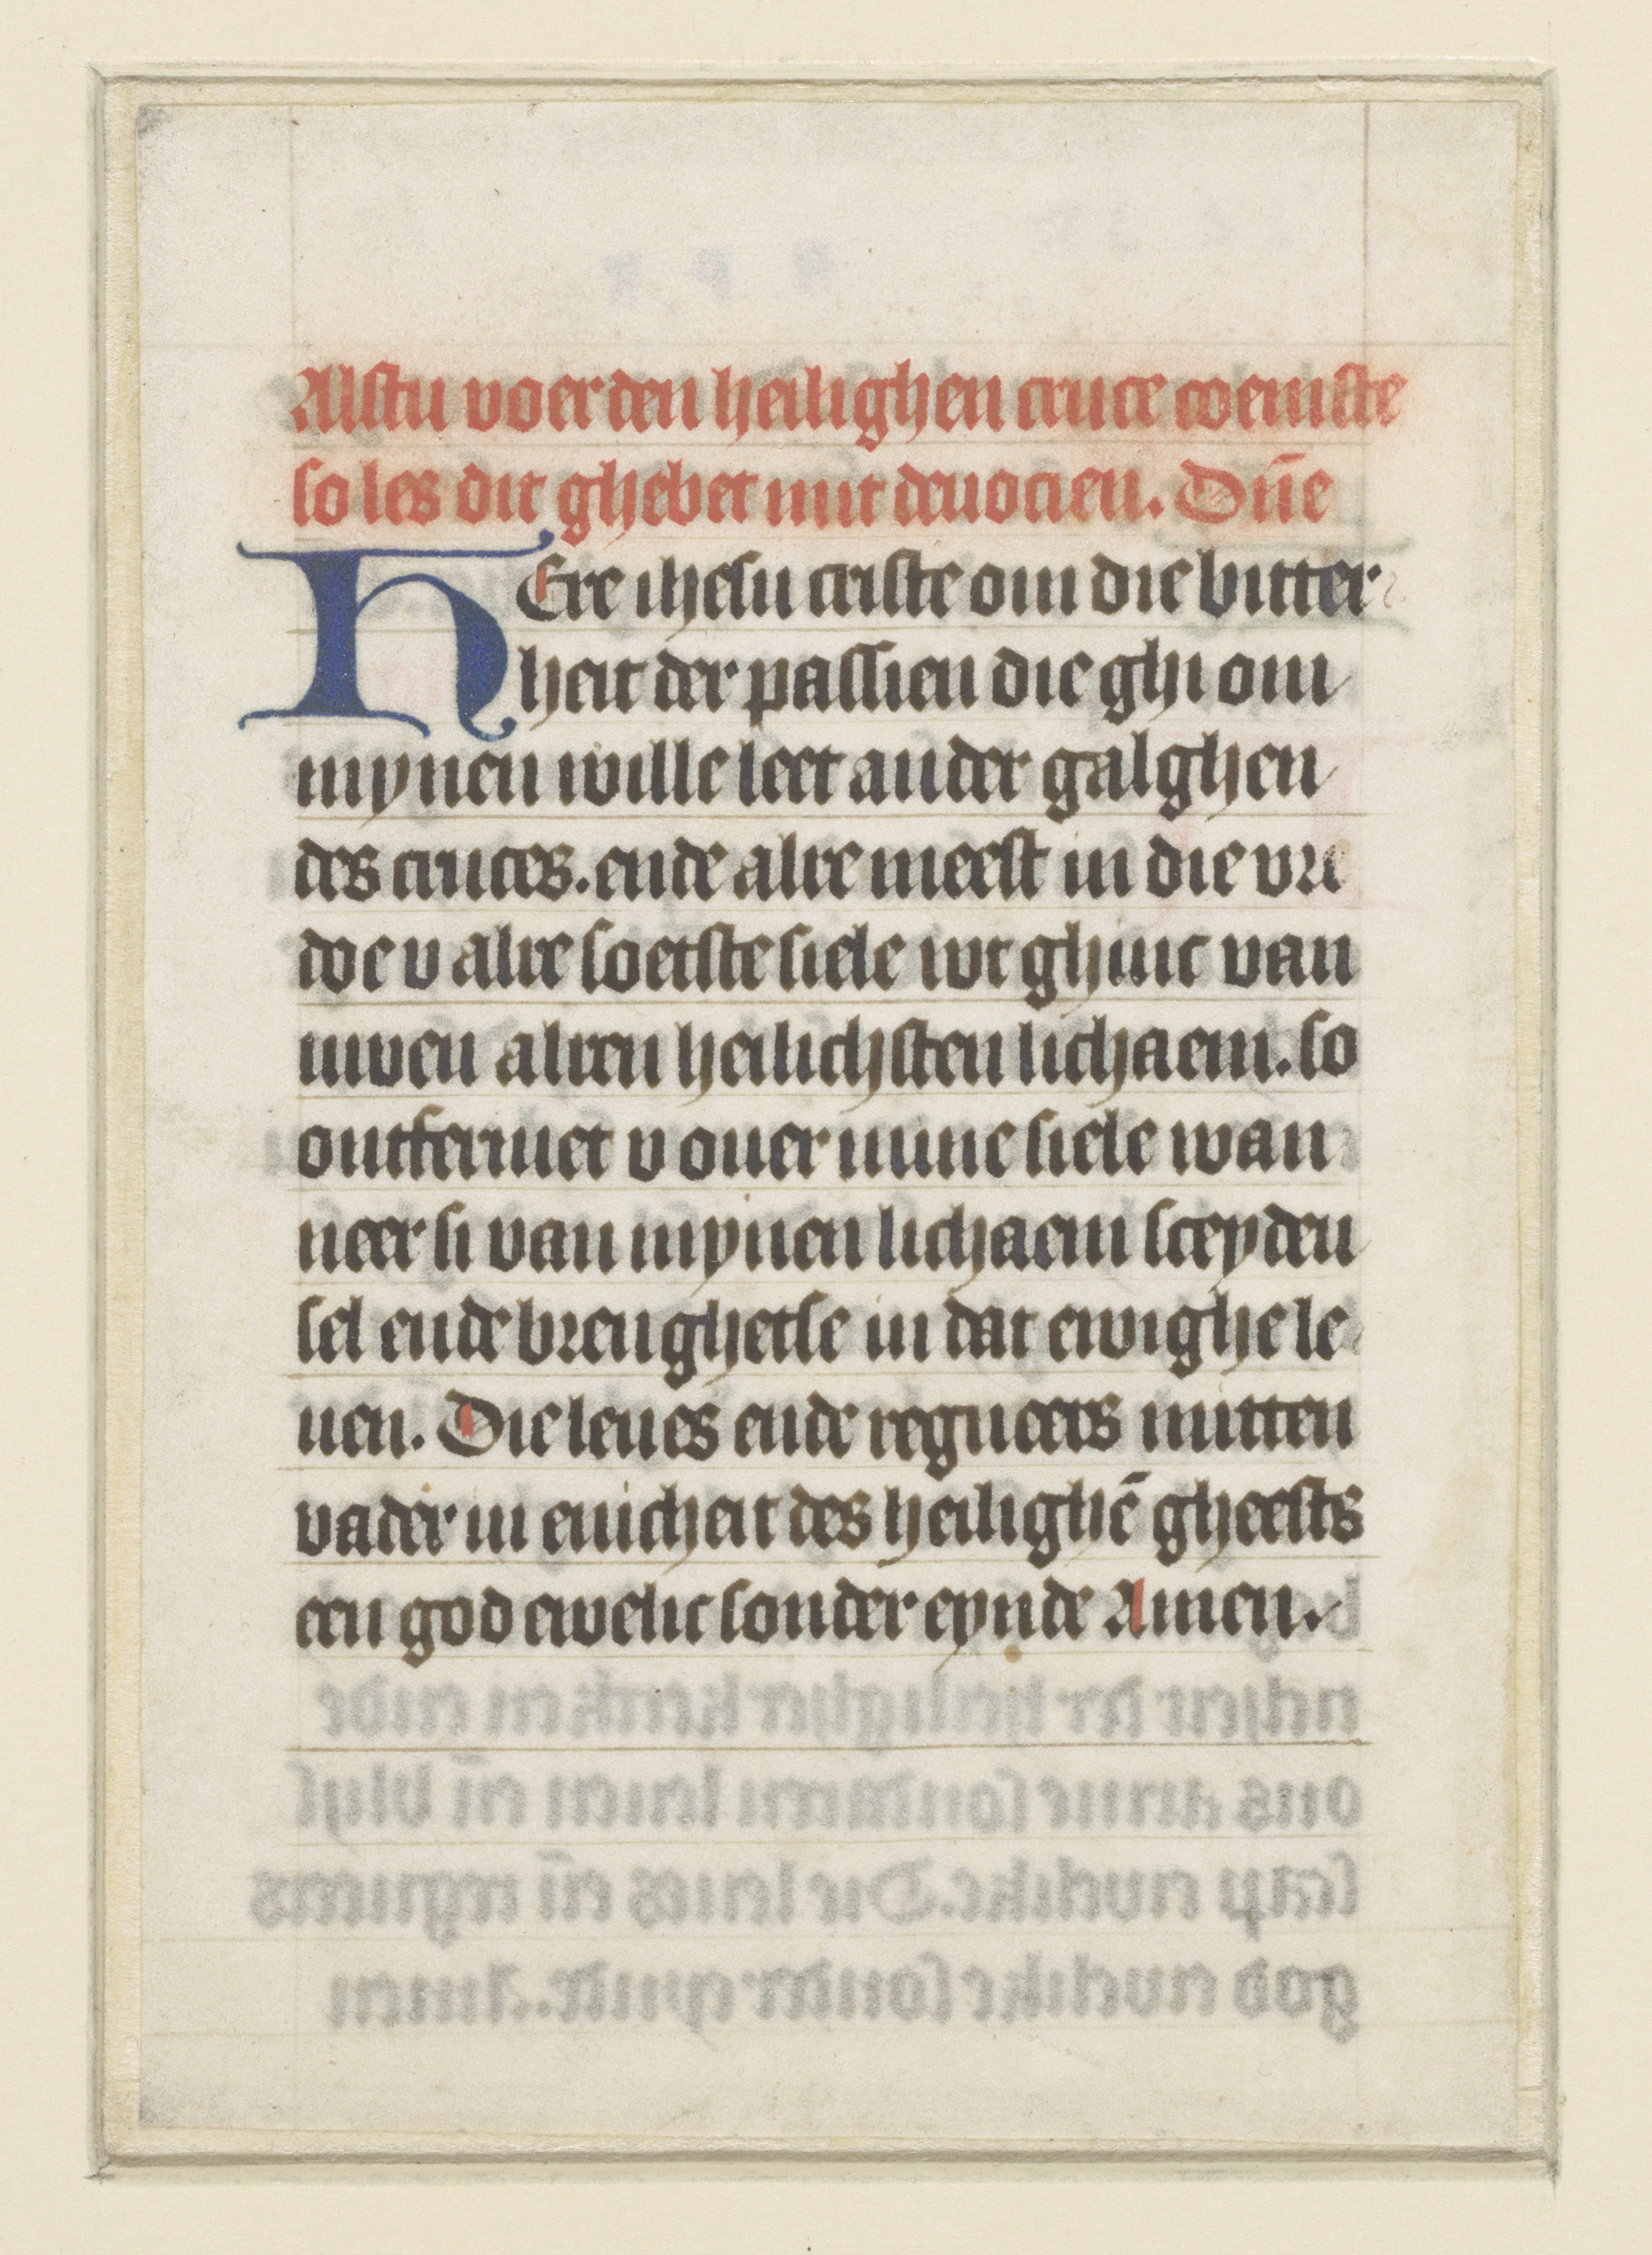 Alstu voer den heilighen cruce coemste
so les dit ghebet mit deuocien. Dn̄e
HEre ihesu criste om die bitter
heit der passien die ghi om
mynen wille leet an der galghen
des cruces. ende alre meest in die vre
doe v alre soetste siele wt ghinc van
uwen alren heilichsten lichaem. so
ontfermet v ouer mine siele wan
neer si van mynen lichaem sceyden
sel ende brenghetse in dat ewighe le
uen. Die leues ende regneers mitten
vader in enicheit des heilighē gheests
een god ewelic sonder eynde Amen.